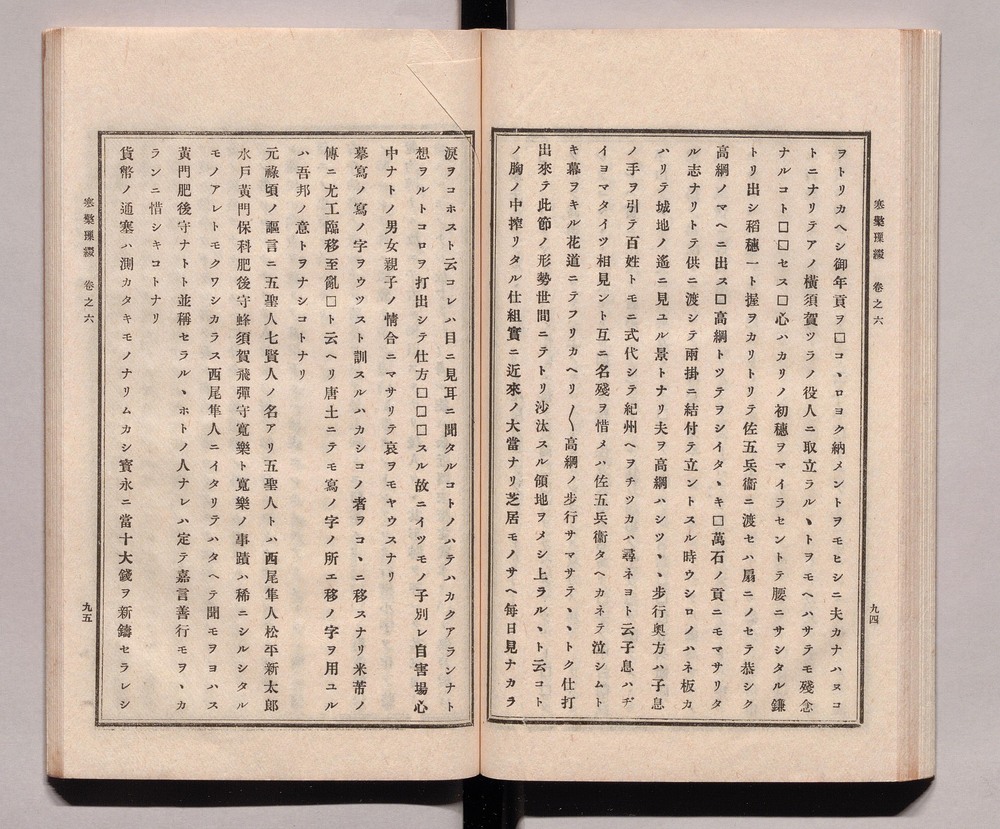 寒檠璅綴　卷之六
九四
ヲトリカヘシ御年貢ヲ□コヽロヨク納メントヲモヒシニ夫カナハヌコ
トニナリテアノ橫須賀ツラノ役人ニ取立ラルヽトヲモヘハサテモ殘念
ナルコト□□セス□心ハカリノ初穗ヲマイラセントテ腰ニサシタル鎌
トリ出シ稻穗一ト握ヲカリトリテ佐五兵衞ニ渡セハ扇ニノセテ恭シク
高綱ノマヘニ出ス□高綱トツテヲシイタヽキ□萬石ノ貢ニモマサリタ
ル志ナリトテ供ニ渡シテ兩掛ニ結付テ立ントスル時ウシロノハネ板カ
ハリテ城地ノ遙ニ見ユル景トナリ夫ヲ高綱ハシツヽヽ步行奧方ハ子息
ノ手ヲ引テ百姓トモニ式代シテ紀州ヘヲチツカハ尋ネヨト云子息ハヂ
イヨマタイツ相見ント互ニ名殘ヲ惜メハ佐五兵衞タヘカネテ泣シムト
キ幕ヲキル花道ニテフリカヘリ〳〵高綱ノ步行サマサテヽヽトク仕打
出來テ此節ノ形勢世間ニテトリ沙汰スル領地ヲメシ上ラルヽト云コト
ノ胸ノ中搾リタル仕組實ニ近來ノ大當ナリ芝居モノサヘ每日見ナカラ
淚ヲコホスト云コレハ目ニ見耳ニ聞タルコトノハテハカクアランナト
想ヲルトコロヲ打出シテ仕方□□□スル故ニイツモノ子別レ自害場心
中ナトノ男女親子ノ情合ニマサリテ哀ヲモヤウスナリ
摹寫ノ寫ノ字ヲウツスト訓スルハカシコノ者ヲコヽニ移スナリ米芾ノ
傳ニ尤工臨移至亂□ト云ヘリ唐土ニテモ寫ノ字ノ所エ移ノ字ヲ用ユル
ハ吾邦ノ意トヲナシコトナリ
元祿頃ノ謳言ニ五聖人七賢人ノ名アリ五聖人トハ西尾隼人松平新太郎
水戶黃門保科肥後守蜂須賀飛彈守寬樂ト寬樂ノ事蹟ハ稀ニシルシタル
モノアレトモクワシカラス西尾隼人ニイタリテハタヘテ聞モヲヨハス
黃門肥後守ナトト並稱セラルヽホトノ人ナレハ定テ嘉言善行モヲヽカ
ランニ惜シキコトナリ
貨幣ノ通塞ハ測カタキモノナリムカシ寶永ニ當十大錢ヲ新鑄セラレシ
寒檠璅綴　卷之六
九五